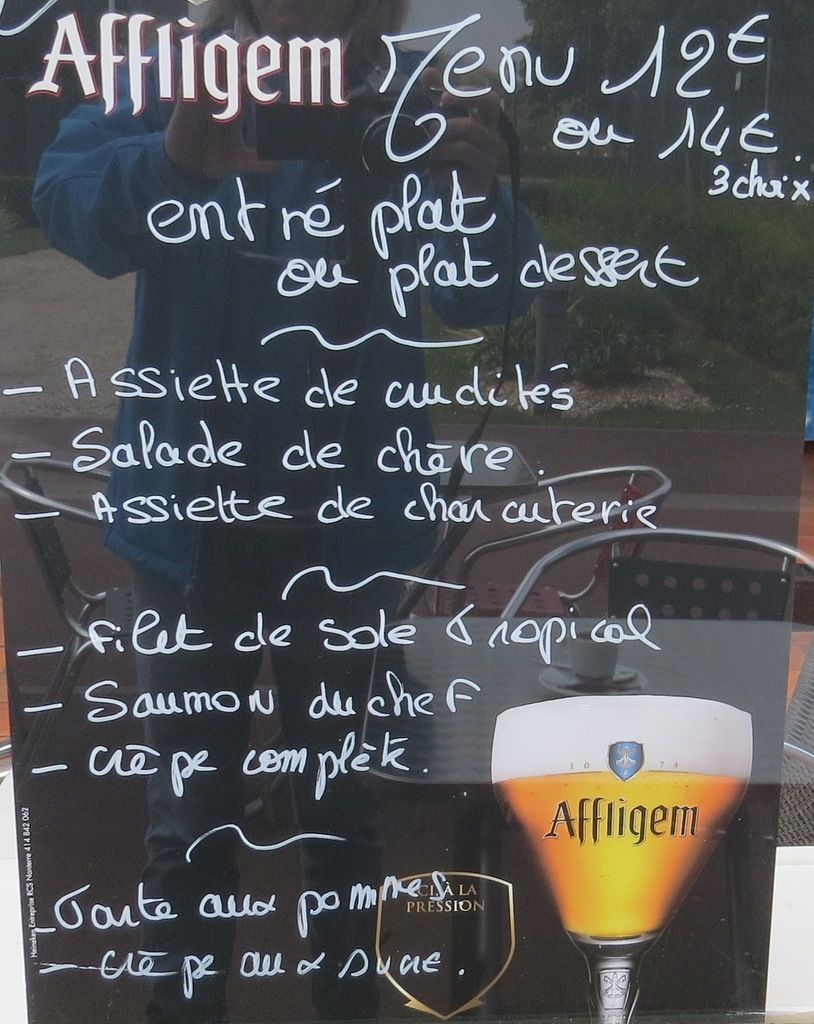 Affligem Menu 12€
ou 14€.
3 choix
entré plat
ou plat dessert
- Assiette de crudités
- Salade de chèvre.
- Assiette de charcuterie
- Filet de sole Tropical
- Saumon du chef
- Crêpe complète.
1074
Affligem
- Tarte aux pommes
ICI, À LA
PRESSION
- Crêpe au sucre.
Heineken Entreprise RCS Nanterre 414 842 062